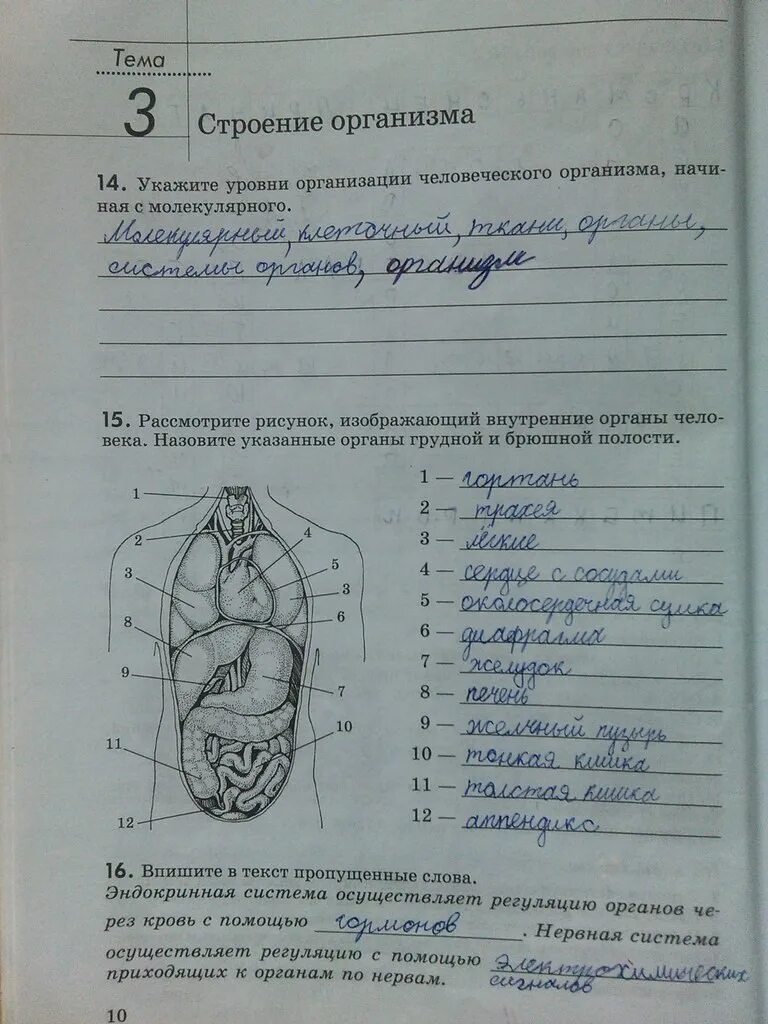 Тема
3
Строение организма
14. Укажите уровни организации человеческого организма, начи-
ная с молекулярного.
Молекулярный, клеточный, ткани, органы,
системы органов, организм
15. Рассмотрите рисунок, изображающий внутренние органы чело-
века. Назовите указанные органы грудной и брюшной полости.
1
2
3
8
9
11
12
4
5
3
6
7
10
1 — гортань
2 — трахея
3 — лёгкие
4 — сердце с сосудами
5 — околосердечная сумка
6 — диафрагма
7 — желудок
8 — печень
9 — желчный пузырь
10 — тонкая кишка
11 — толстая кишка
12 — аппендикс
16. Впишите в текст пропущенные слова.
Эндокринная система осуществляет регуляцию органов че-
рез кровь с помощью гормонов . Нервная система
осуществляет регуляцию с помощью электрохимических
сигналов
приходящих к органам по нервам.
10